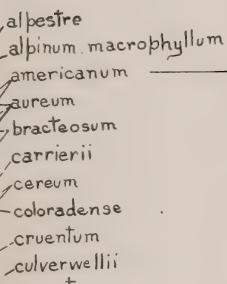 alpestre
alpinum macrophyllum
americanum
aureum
bracteosum
carrierii
cereum
coloradense
cruentum
culverwellii